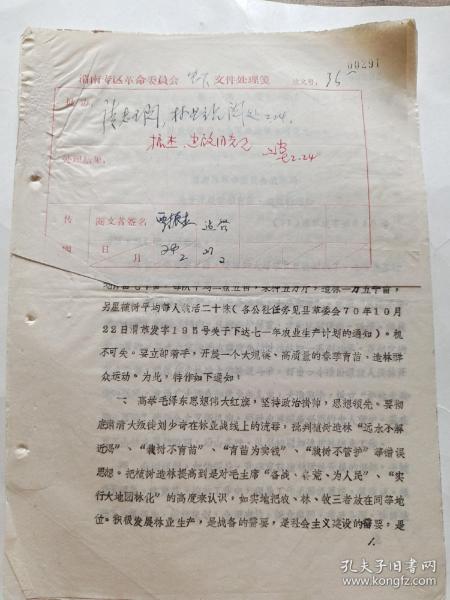 00291
渭南专区革命委员会 文件处理笺 收文号:36
批办:
2.24.
2.24
处理结果:
传阅
阅文者签名
日
月
29/2
27/2
地育苗七千亩,每队平均二亩五亩,采种五万斤,造林一万五千亩,
另星植树平均每人栽活二十株(各公社任务见县革委会70年10月
22日渭革发字195号关于下达七一年农业生产计划的通知)。机
不可失。要立即着手,开展一个大规模、高质量的春季育苗、造林群
众运动。为此,特作如下通知:
一、高举毛泽东思想伟大红旗,坚持政治挂帅,思想领先。要彻
底肃清大叛徒刘少奇在林业战线上的流毒,批判植树造林“远水不解
近渴”、“栽树不育苗”、“育苗为卖钱”、“栽树不管护”等错误
思想。把植树造林提高到是对毛主席“备战、备荒、为人民”、“实
行大地园林化”的高度来认识,如实地把农、林、牧三者放在同等地
位。积极发展林业生产,是战备的需要,是社会主义建设的需要,是
1.
孔夫子旧书网
www.kongfz.com